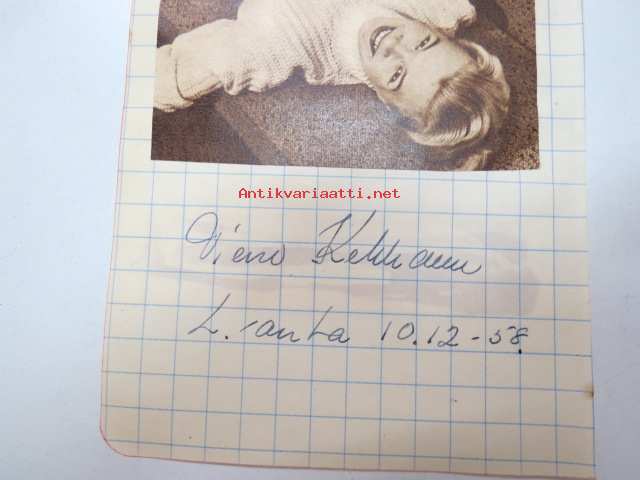 Antikvariaatti.net
Vieno Kekkonen
L.ranta 10.12-58